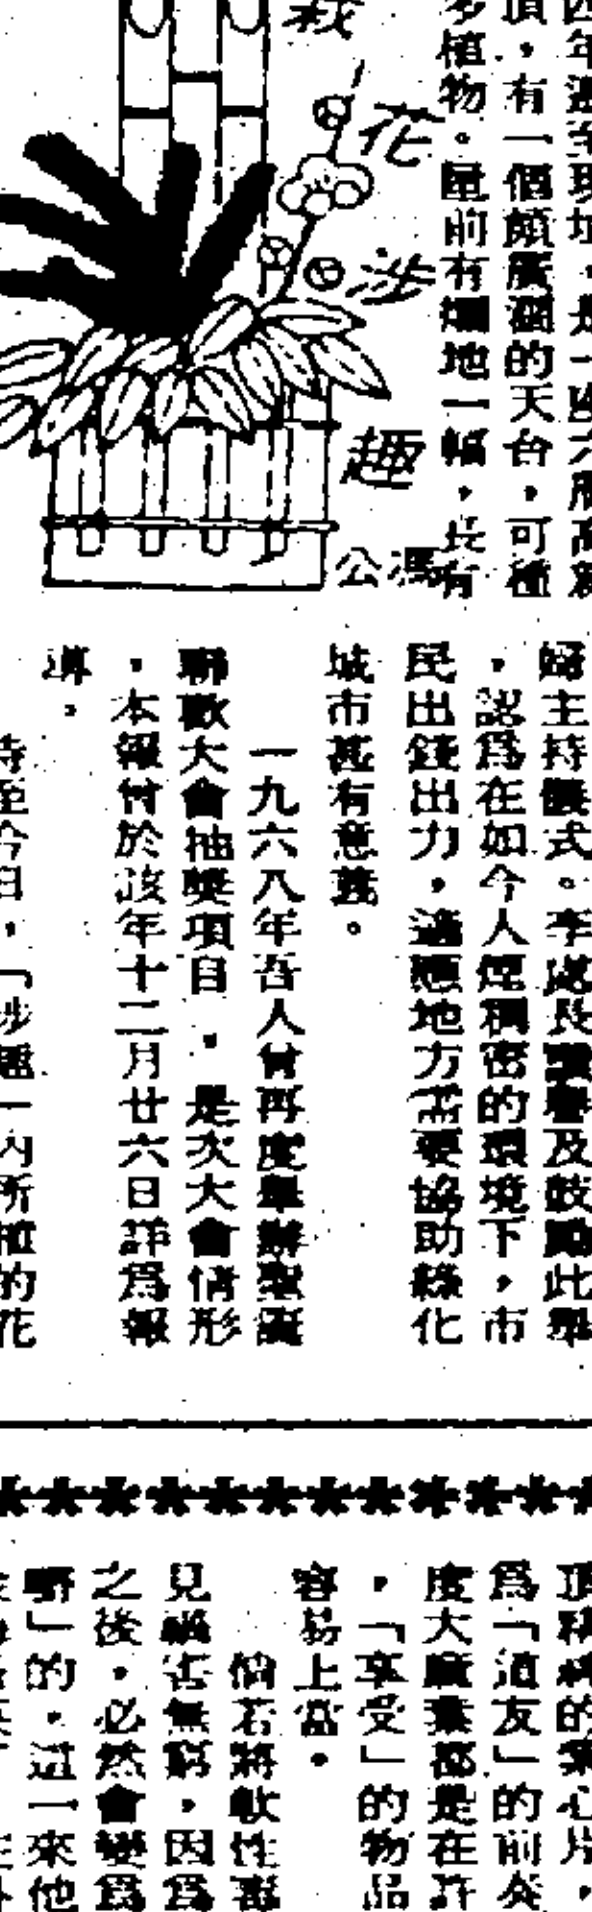 栽
花
涉
趣
馮公
四年遷至現址,是一座六層高新
頂,有一個頗廣闊的天台,可種
多植物。屋前有爛地一幅,長有
主持儀式。李處長讚譽及鼓勵此舉
,認爲在如今人煙稠密的環境下,市
民出錢出力,適應地方需要協助綠化
城市甚有意義。
一九六八年吾人曾再度舉辦聖誕
聯歡大會抽獎項目,是次大會情形
,本報曾於該年十二月廿六日詳爲報
導。
時至今日,「涉趣」內所種的花
的葉心片,
爲「道友」的前
度大廈裏都是在許
,「享受」的物品
容易上當。
倘若將軟性毒
見禍害無窮,因爲
之後,必然會變爲
的,這一來他